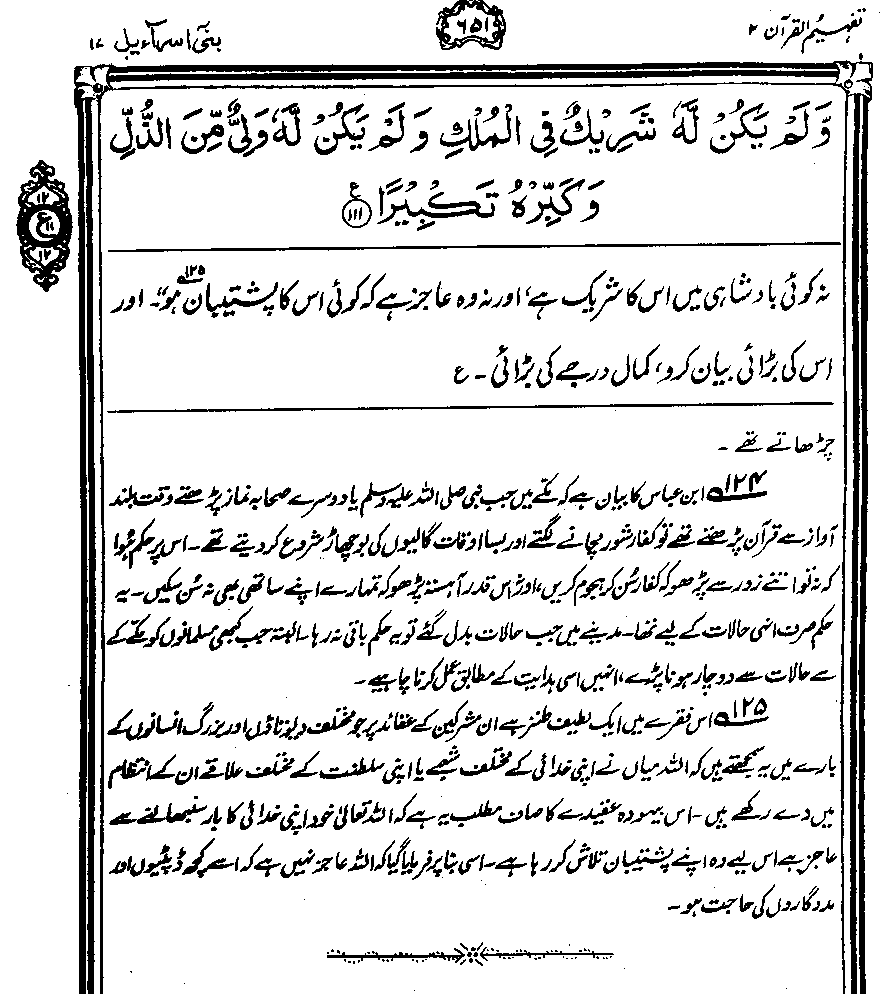 تفہیم القرآن ۲
۶۵۱
بنی اسرآءیل ۱۷
وَّلَمْ يَكُنْ لَّهٗ شَرِيْكٌ فِي الْمُلْكِ وَلَمْ يَكُنْ لَّهٗ وَلِيٌّ مِّنَ الذُّلِّ
وَكَبِّرْهُ تَكْبِيْرًا ﴿۱۱۱﴾ ع
۱۲
ع
۱۱
۱۲
نہ کوئی بادشاہی میں اس کا شریک ہے، اور نہ وہ عاجز ہے کہ کوئی اس کا پشتیبان ہو"۔ ۱۲۵ اور
اس کی بڑائی بیان کرو، کمال درجے کی بڑائی۔ ع
چڑھاتے تھے۔
۱۲۴ ابن عباس کا بیان ہے کہ مکے میں جب نبی صلی اللہ علیہ وسلم یا دوسرے صحابہ نماز پڑھتے وقت بلند
آواز سے قرآن پڑھتے تھے تو کفار شور مچانے لگتے اور بسا اوقات گالیوں کی بوچھاڑ شروع کر دیتے تھے۔ اس پر حکم ہُوا
کہ نہ تو اتنے زور سے پڑھو کہ کفار سُن کر ہجوم کریں، اور نہ اس قدر آہستہ پڑھو کہ تمہارے اپنے ساتھی بھی نہ سُن سکیں۔ یہ
حکم صرف انہی حالات کے لیے تھا۔ مدینے میں جب حالات بدل گئے تو یہ حکم باقی نہ رہا۔ البتہ جب کبھی مسلمانوں کو مکّے کے
سے حالات سے دوچار ہونا پڑے، انہیں اسی ہدایت کے مطابق عمل کرنا چاہیے۔
۱۲۵ اس فقرے میں ایک لطیف طنز ہے ان مشرکین کے عقائد پر جو مختلف دیوتاؤں اور بزرگ انسانوں کے
بارے میں یہ سمجھتے ہیں کہ اللہ میاں نے اپنی خدائی کے مختلف شعبے یا اپنی سلطنت کے مختلف علاقے ان کے انتظام
میں دے رکھے ہیں۔ اس بیہودہ عقیدے کا صاف مطلب یہ ہے کہ اللہ تعالیٰ خود اپنی خدائی کا بار سنبھالنے سے
عاجز ہے اس لیے وہ اپنے پشتیبان تلاش کر رہا ہے۔ اسی بنا پر فرمایا گیا کہ اللہ عاجز نہیں ہے کہ اسے کچھ ڈپٹیوں اور
مددگاروں کی حاجت ہو۔